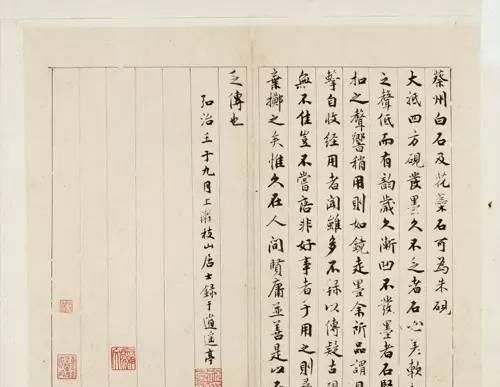 蔡州白石及花蘂石可為朱硯
大抵四方硯發墨久不乏者石必差軟
之聲低而有韵歲久漸凹不發墨者石堅
扣之聲響稍用則如鏡走墨余所品謂目
擊自收經用者聞雖多不錄以傳疑古硯
無不佳豈不嘗語非好事者予用之則
棄擲之矣惟久在人間賢庸並善是以
乏傳也
弘治壬子九月上澣枝山居士錄于逍遥亭